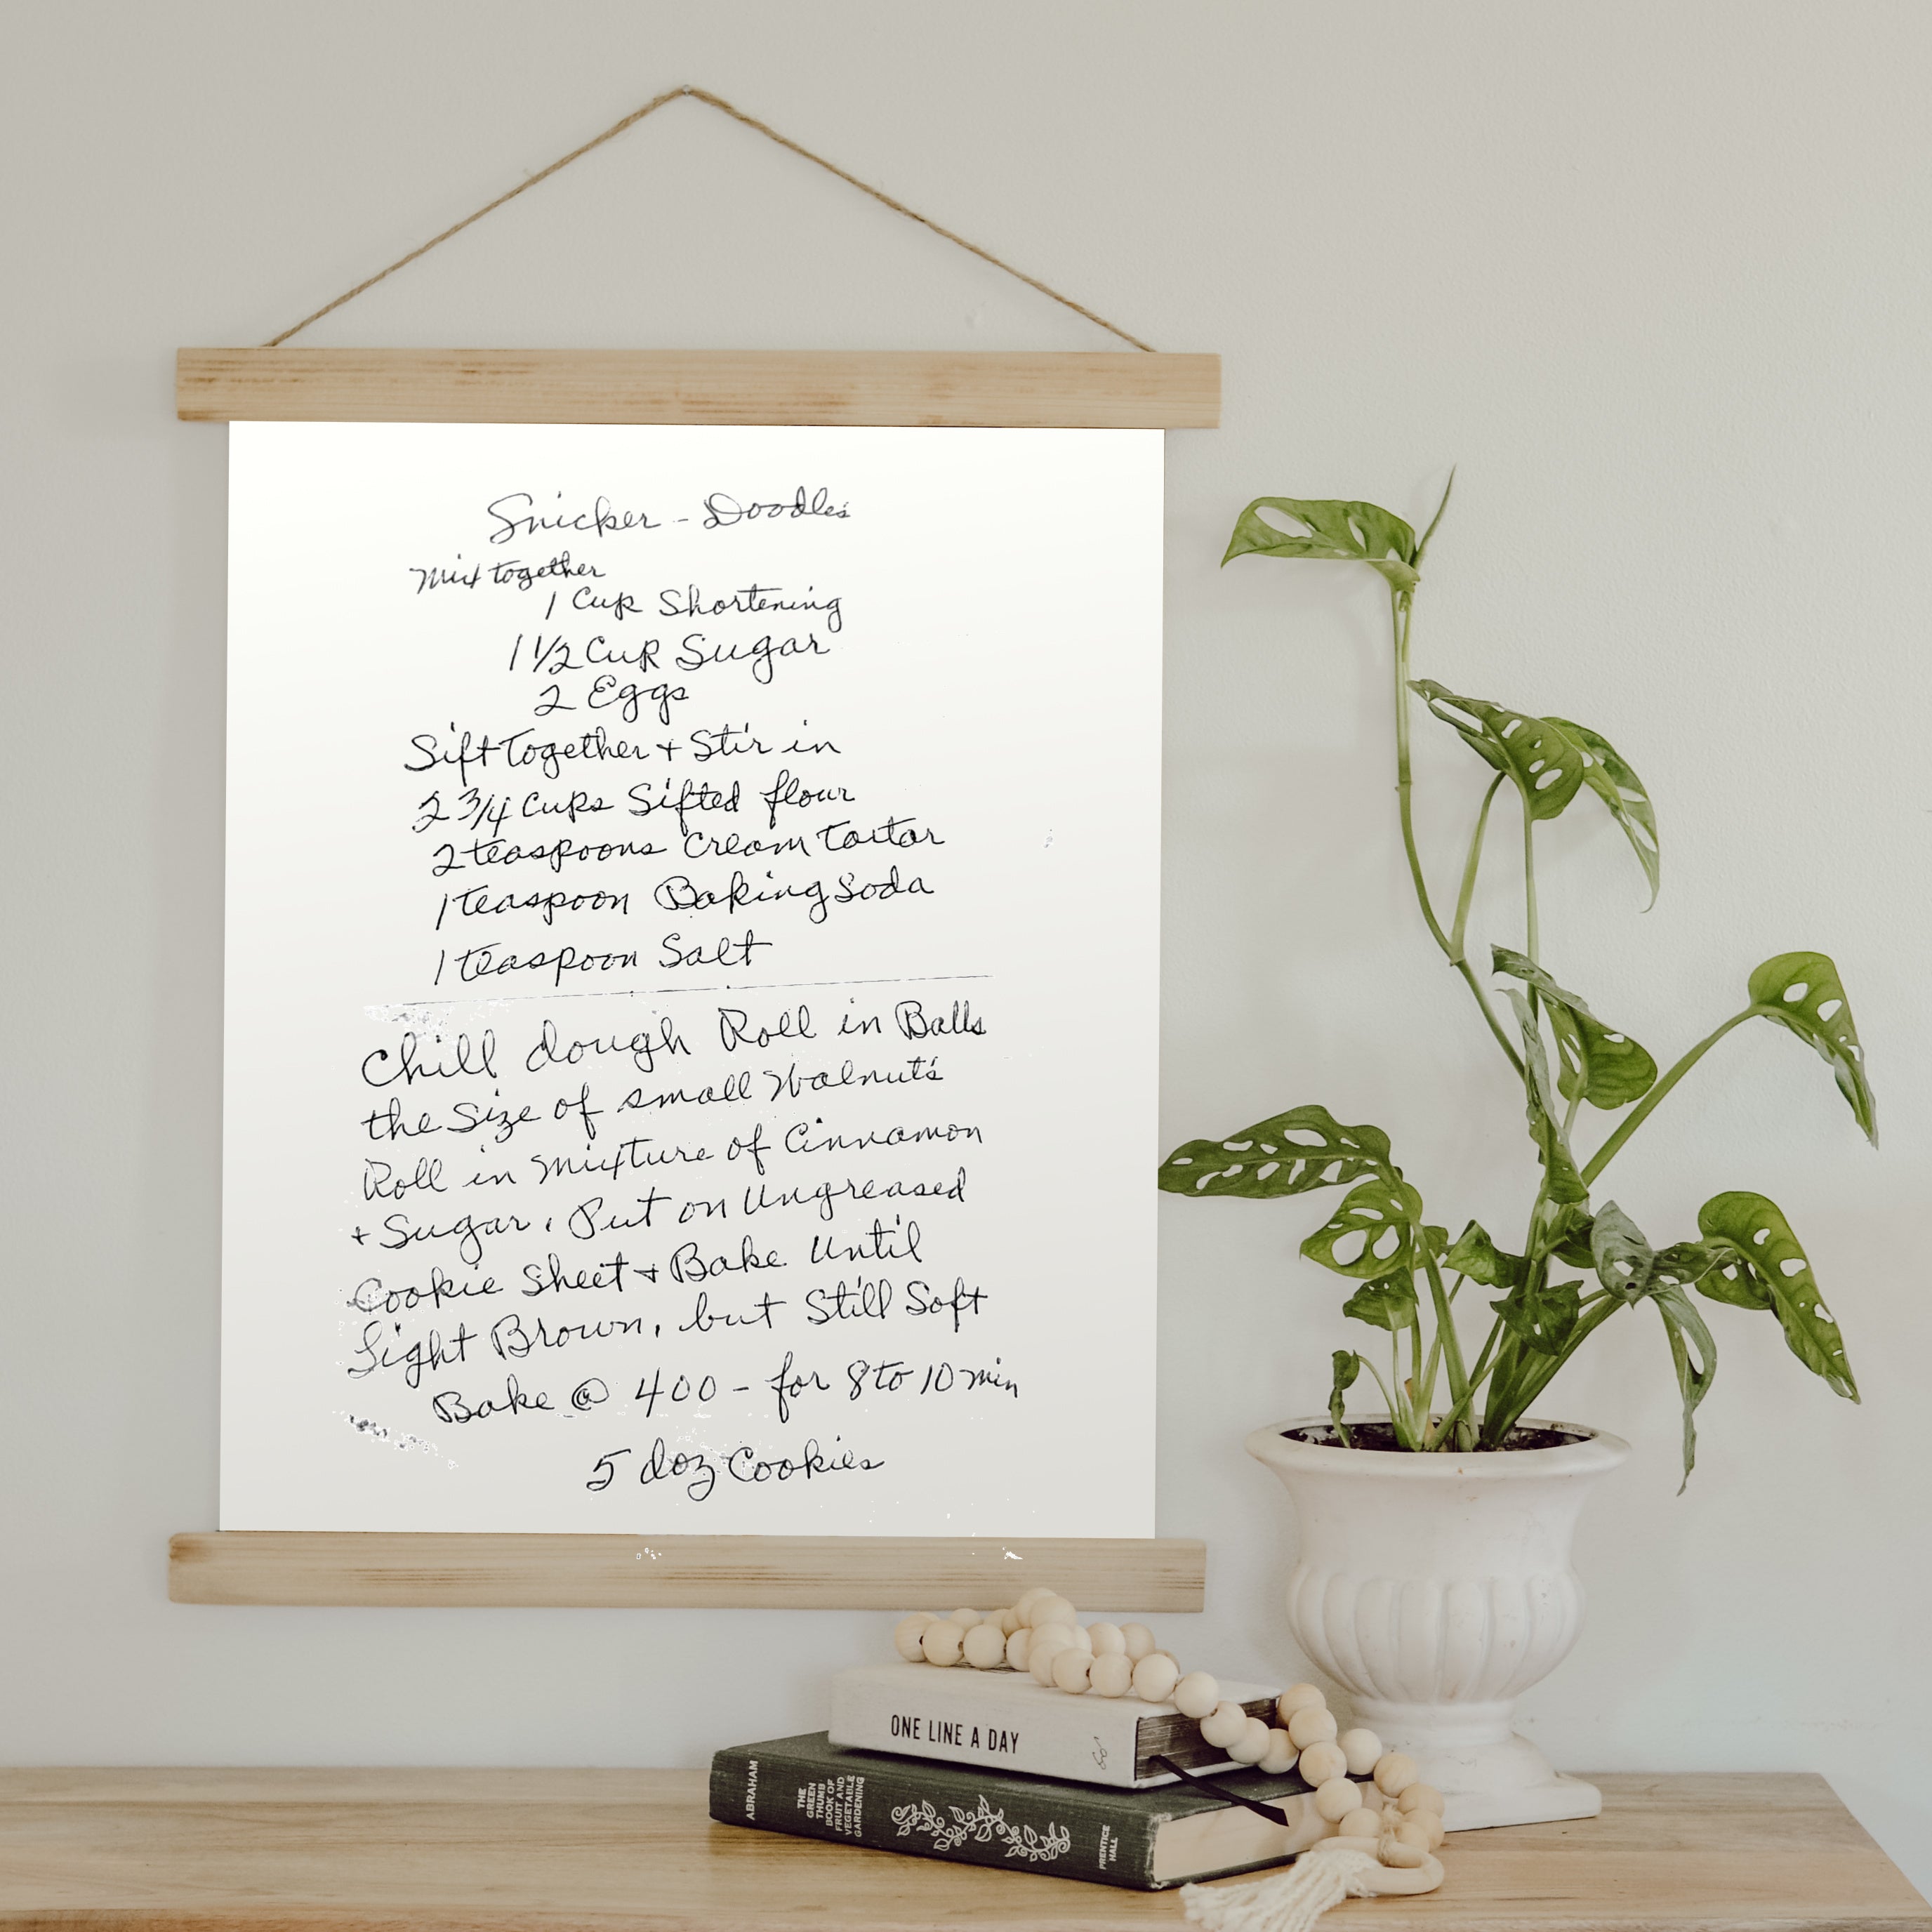 Snicker - Doodles
Mix together
1 Cup Shortening
1 1/2 Cup Sugar
2 Eggs
Sift Together + Stir in
2 3/4 Cups Sifted flour
2 teaspoons Cream Tartar
1 teaspoon Baking Soda
1 teaspoon Salt
Chill dough Roll in Balls
the Size of small Walnuts
Roll in Mixture of Cinnamon
+ Sugar. Put on Ungreased
Cookie Sheet + Bake Until
Light Brown, but Still Soft
Bake @ 400 - for 8 to 10 min
5 doz Cookies
ONE LINE A DAY
ABRAHAM
THE
GREEN
THUMB
BOOK OF
FRUIT AND
VEGETABLE
GARDENING
PRENTICE
HALL